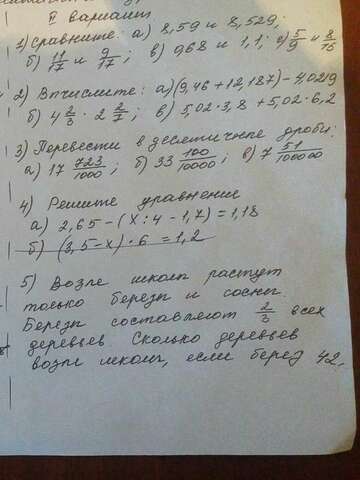 II вариант
1) Сравните: а) 8,59 и 8,529;
б) 11/17 и 9/17; в) 968 и 1,1; г) 5/9 и 8/15
2) Вычислите: а) (9,46 + 12,187) - 4,0219
б) 4 2/3 · 2 2/7; в) 5,02 · 3,8 + 5,02 · 6,2
3) Перевести в десятичные дроби:
а) 17 723/1000; б) 33 100/10000; в) 7 51/100000
4) Решите уравнение
а) 2,65 - (x : 4 - 1,7) = 1,18
б) (3,5 - x) · 6 = 1,2
5) Возле школы растут
только березы и сосны.
Березы составляют 2/3 всех
деревьев Сколько деревьев
возле школы, если берез 42.